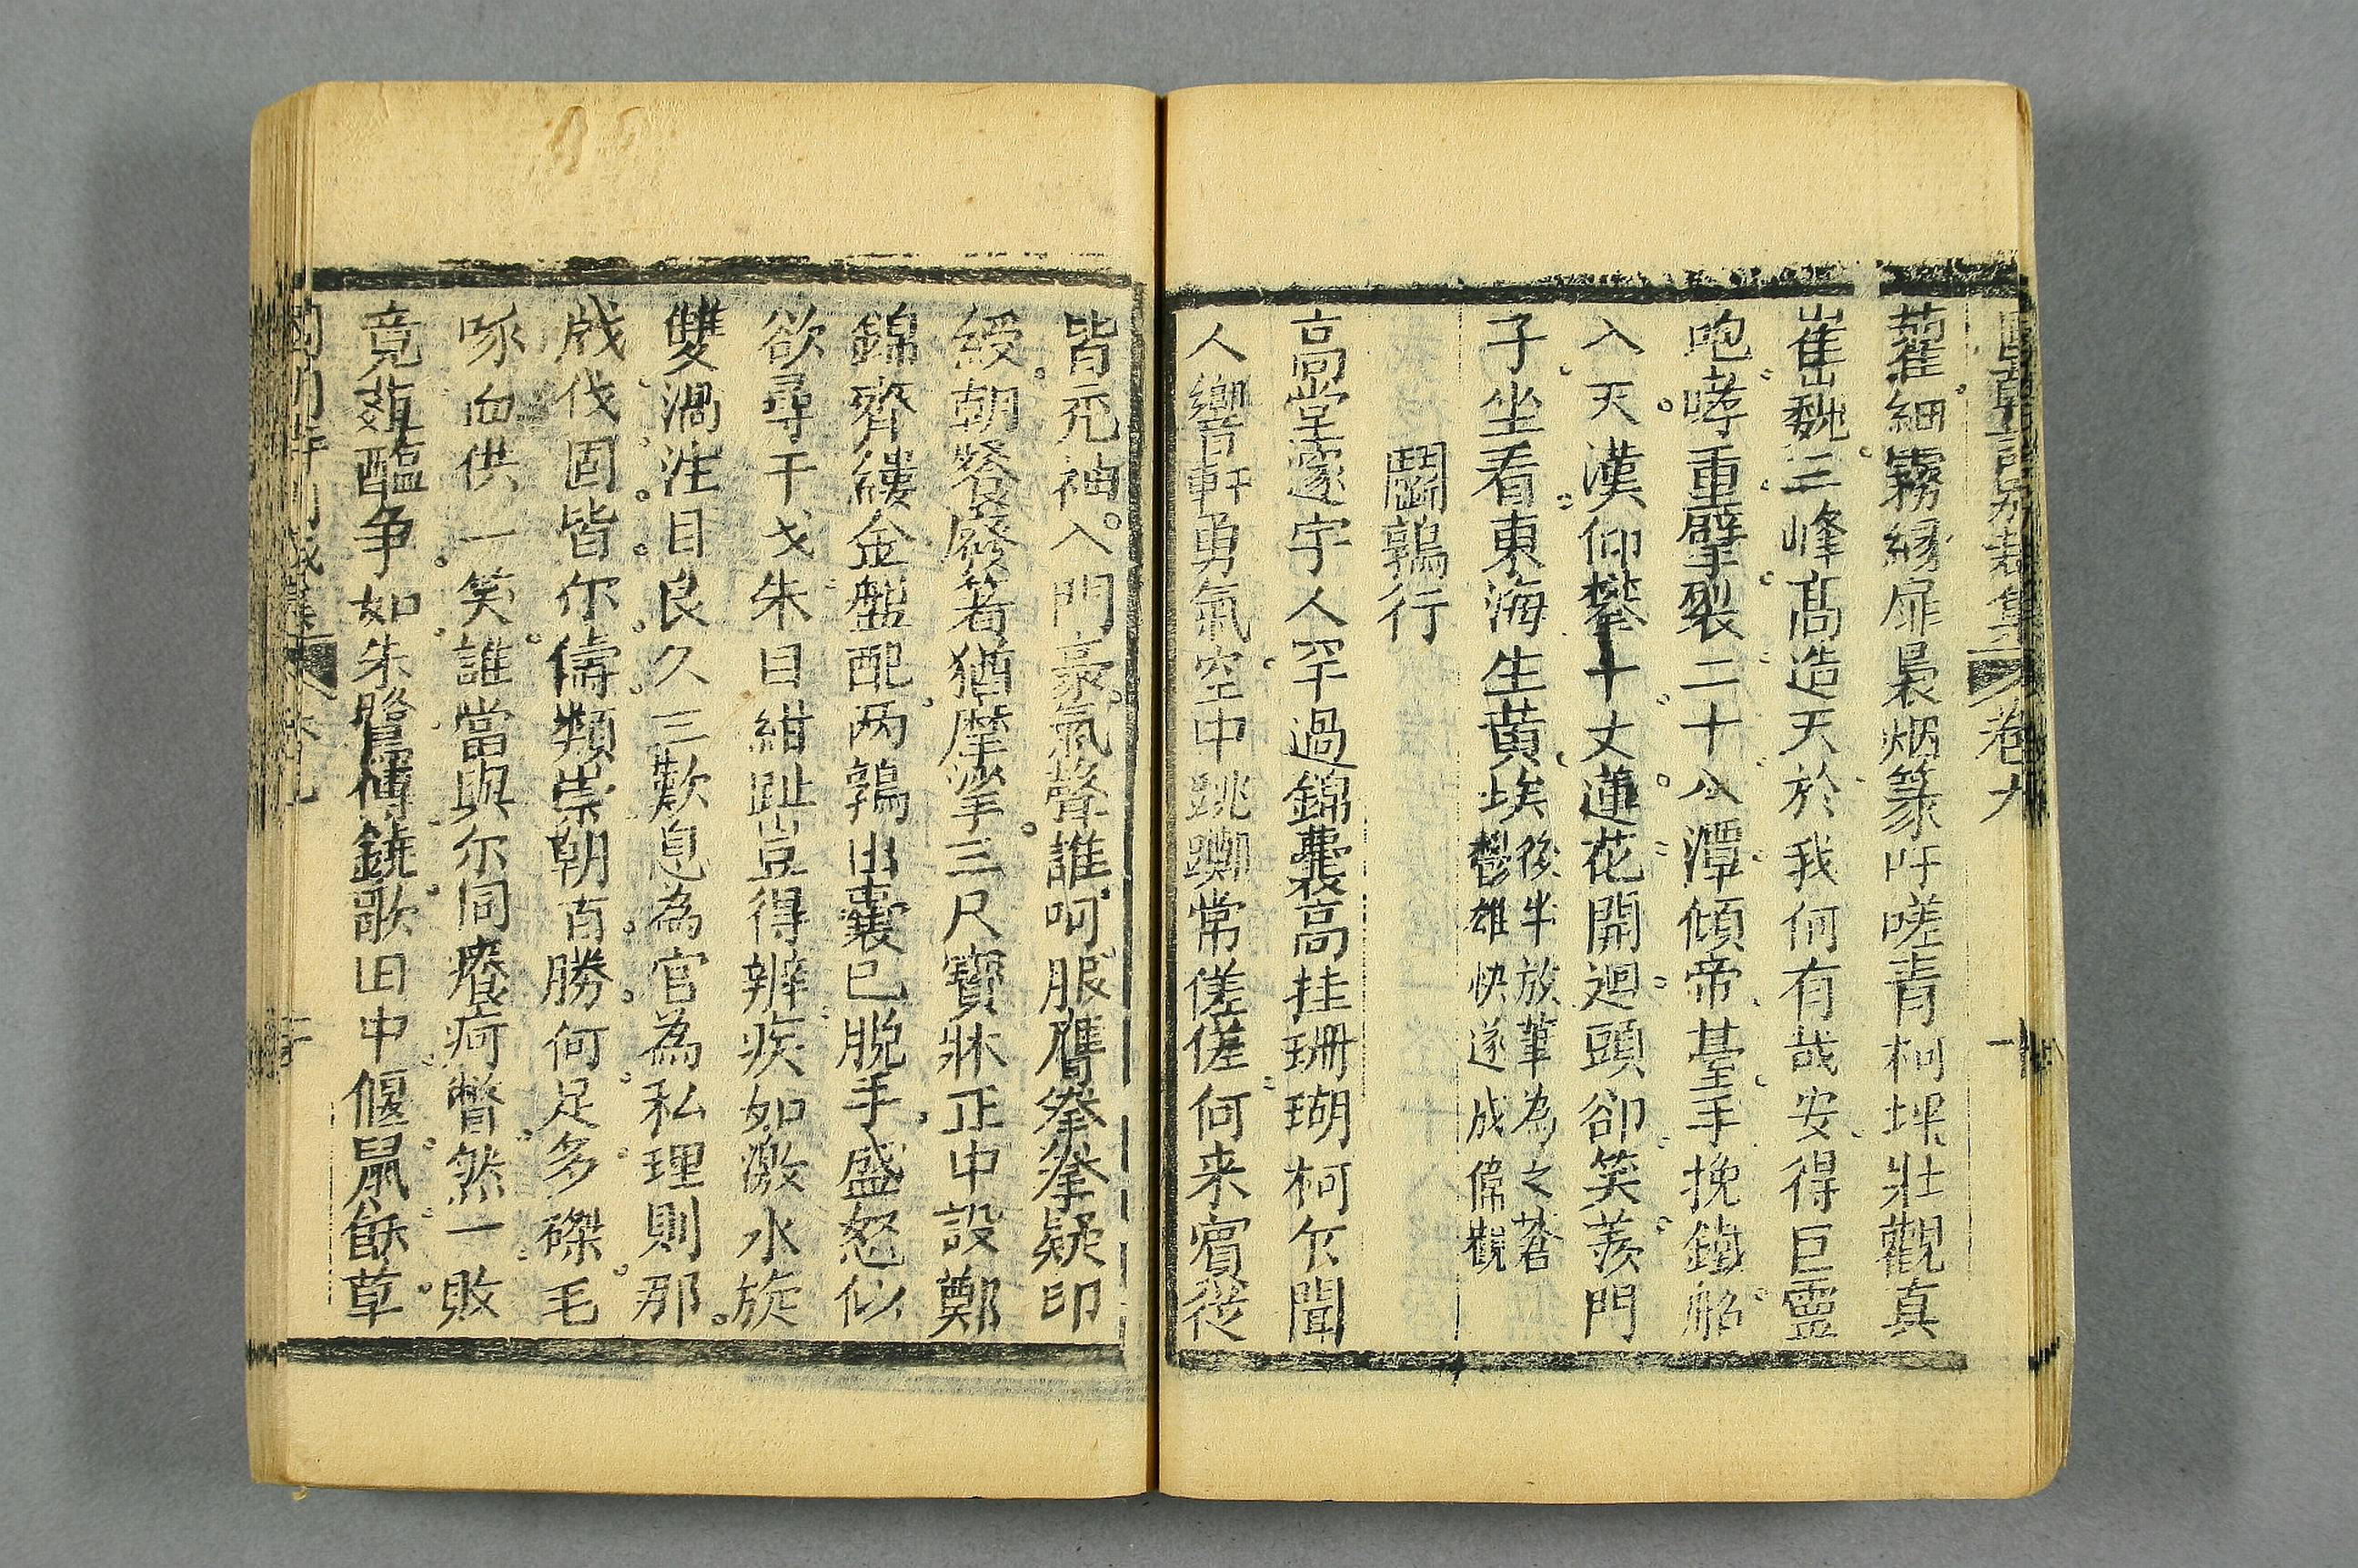 國朝詩別裁集 卷九 一
蘿細霧緣扉裊烟篆吁嗟青柯坪壯觀真
崔巍三峰髙造天於我何有哉安得巨靈
咆哮重擘裂二十八潭傾帝臺手挽鐵船
入天漢仰攀十丈蓮花開迴頭卻笑羨門
子坐看東海生黄埃後半放筆為之蒼
鬱雄快遂成偉觀
鬭鶉行
高堂邃宇人罕過錦囊高挂珊瑚柯乍聞
人響軒勇氣空中跳躑常傞傞何来賓從
皆元袖入門豪氣聲誰呵服膺拳拳疑印
綬朝餐廢箸猶摩挲三尺寶牀正中設鄭
錦齊縷金盤配两鶉出囊已脱手盛怒似
欲尋干戈朱目紺趾豈得辨疾如激水旋
雙渦注目良久三歎息為官為私理則那
戕伐固皆尔儔類崇朝百勝何足多磔毛
啄血供一笑誰當與尔同癢疴瞥然一敗
竟葅醢争如朱鷺傳鐃歌田中偃鼠飽草